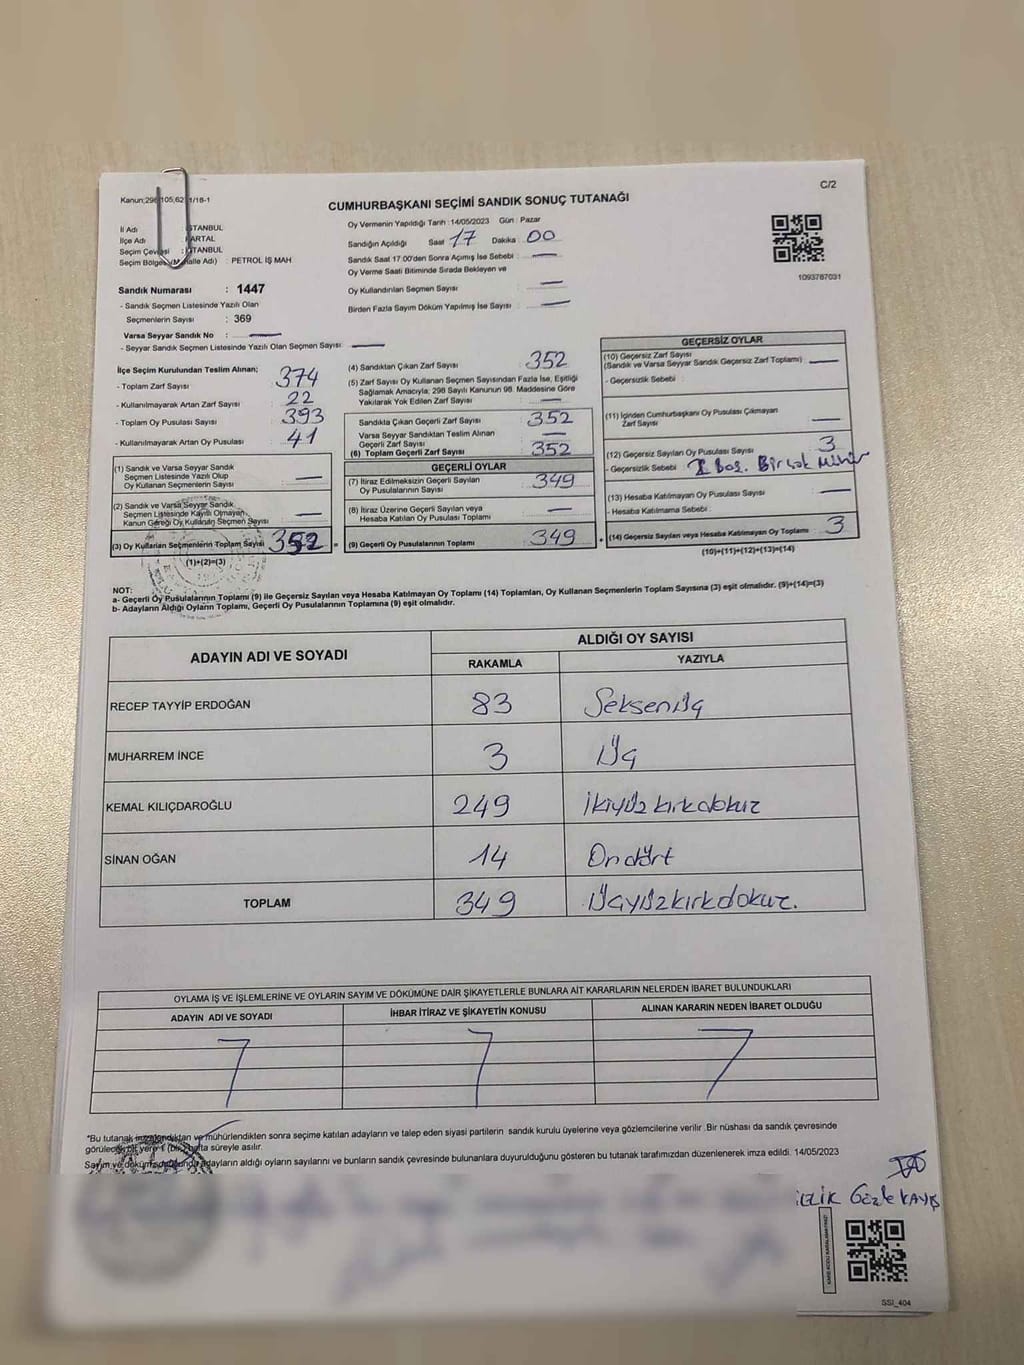 C/2
Kanun;298,105;62 1/18-1
CUMHURBAŞKANI SEÇİMİ SANDIK SONUÇ TUTANAĞI
İl Adı : İSTANBUL
İlçe Adı KARTAL
Seçim Çevresi : İSTANBUL
Seçim Bölgesi (Mahalle Adı) : PETROL İŞ MAH
Sandık Numarası : 1447
- Sandık Seçmen Listesinde Yazılı Olan
Seçmenlerin Sayısı : 369
Varsa Seyyar Sandık No :
- Seyyar Sandık Seçmen Listesinde Yazılı Olan Seçmen Sayısı:
Oy Vermenin Yapıldığı Tarih :14/05/2023 Gün : Pazar
Sandığın Açıldığı Saat 17 Dakika : 00
Sandık Saat 17:00'den Sonra Açımış İse Sebebi :
Oy Verme Saati Bitiminde Sırada Bekleyen ve
Oy Kullandırılan Seçmen Sayısı :
Birden Fazla Sayım Döküm Yapılmış İse Sayısı :
1093787031
İlçe Seçim Kurulundan Teslim Alınan;
- Toplam Zarf Sayısı : 374
- Kullanılmayarak Artan Zarf Sayısı : 22
- Toplam Oy Pusulası Sayısı : 393
- Kullanılmayarak Artan Oy Pusulası : 41
(1) Sandık ve Varsa Seyyar Sandık
Seçmen Listesinde Yazılı Olup
Oy Kullanan Seçmenlerin Sayısı :
(2) Sandık ve Varsa Seyyar Sandık
Seçmen Listesinde Kayıtlı Olmayan
Kanun Gereği Oy Kullanan Seçmen Sayısı
(3) Oy Kullanan Seçmenlerin Toplam Sayısı 352 =
(1)+(2)=(3)
(4) Sandıktan Çıkan Zarf Sayısı : 352
(5) Zarf Sayısı Oy Kullanan Seçmen Sayısından Fazla İse, Eşitliği
Sağlamak Amacıyla; 298 Sayılı Kanunun 98. Maddesine Göre
Yakılarak Yok Edilen Zarf Sayısı :
Sandıkta Çıkan Geçerli Zarf Sayısı : 352
Varsa Seyyar Sandıktan Teslim Alınan
Geçerli Zarf Sayısı :
(6) Toplam Geçerli Zarf Sayısı : 352
GEÇERLİ OYLAR
(7) İtiraz Edilmeksizin Geçerli Sayılan
Oy Pusulalarının Sayısı : 349
(8) İtiraz Üzerine Geçerli Sayılan veya
Hesaba Katılan Oy Pusulası Toplamı :
(9) Geçerli Oy Pusulalarının Toplamı : 349 +
GEÇERSİZ OYLAR
(10) Geçersiz Zarf Sayısı
(Sandık ve Varsa Seyyar Sandık Geçersiz Zarf Toplamı) :
- Geçersizlik Sebebi :
(11) İçinden Cumhurbaşkanı Oy Pusulası Çıkmayan
Zarf Sayısı :
(12) Geçersiz Sayılan Oy Pusulası Sayısı : 3
- Geçersizlik Sebebi : Boş. Birçok Mühür
(13) Hesaba Katılmayan Oy Pusulası Sayısı :
- Hesaba Katılmama Sebebi :
(14) Geçersiz Sayılan veya Hesaba Katılmayan Oy Toplamı : 3
(10)+(11)+(12)+(13)=(14)
NOT:
a- Geçerli Oy Pusulalarının Toplamı (9) ile Geçersiz Sayılan veya Hesaba Katılmayan Oy Toplamı (14) Toplamları, Oy Kullanan Seçmenlerin Toplam Sayısına (3) eşit olmalıdır. (9)+(14)=(3)
b- Adayların Aldığı Oyların Toplamı, Geçerli Oy Pusulalarının Toplamına (9) eşit olmalıdır.
ADAYIN ADI VE SOYADI ALDIĞI OY SAYISI
RAKAMLA YAZIYLA
RECEP TAYYİP ERDOĞAN 83 Seksenüç
MUHARREM İNCE 3 Üç
KEMAL KILIÇDAROĞLU 249 ikiyüzkırkdokuz
SİNAN OĞAN 14 Ondört
TOPLAM 349 Üçyüzkırkdokuz.
OYLAMA İŞ VE İŞLEMLERİNE VE OYLARIN SAYIM VE DÖKÜMÜNE DAİR ŞİKAYETLERLE BUNLARA AİT KARARLARIN NELERDEN İBARET BULUNDUKLARI
ADAYIN ADI VE SOYADI İHBAR İTİRAZ VE ŞİKAYETİN KONUSU ALINAN KARARIN NEDEN İBARET OLDUĞU
*Bu tutanak imzalandıktan ve mühürlendikten sonra seçime katılan adayların ve talep eden siyasi partilerin sandık kurulu üyelerine veya gözlemcilerine verilir .Bir nüshası da sandık çevresinde
görülecek bir yere 1 (bir) hafta süreyle asılır.
Sayım ve dökümü adayların aldığı oyların sayılarını ve bunların sandık çevresinde bulunanlara duyurulduğunu gösteren bu tutanak tarafımızdan düzenlenerek imza edildi. 14/05/2023
SSI_404